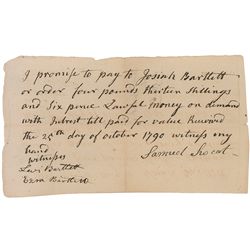 I promise to pay to Josiah Bartlett
or order four pounds thirteen Shillings
and Six pence Lawful money on demand
with Intrest till paid for value Received
the 25th day of October 1790 witness my
hand
witness
Samuel
Levi Bartlett
Ezra Bartlett